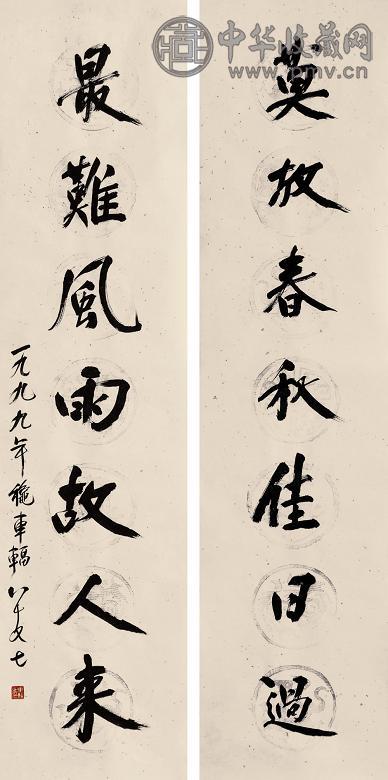 中华收藏网
www.pmv.cn
莫放春秋佳日過
最難風雨故人来
一九九九年 車輻八十又七